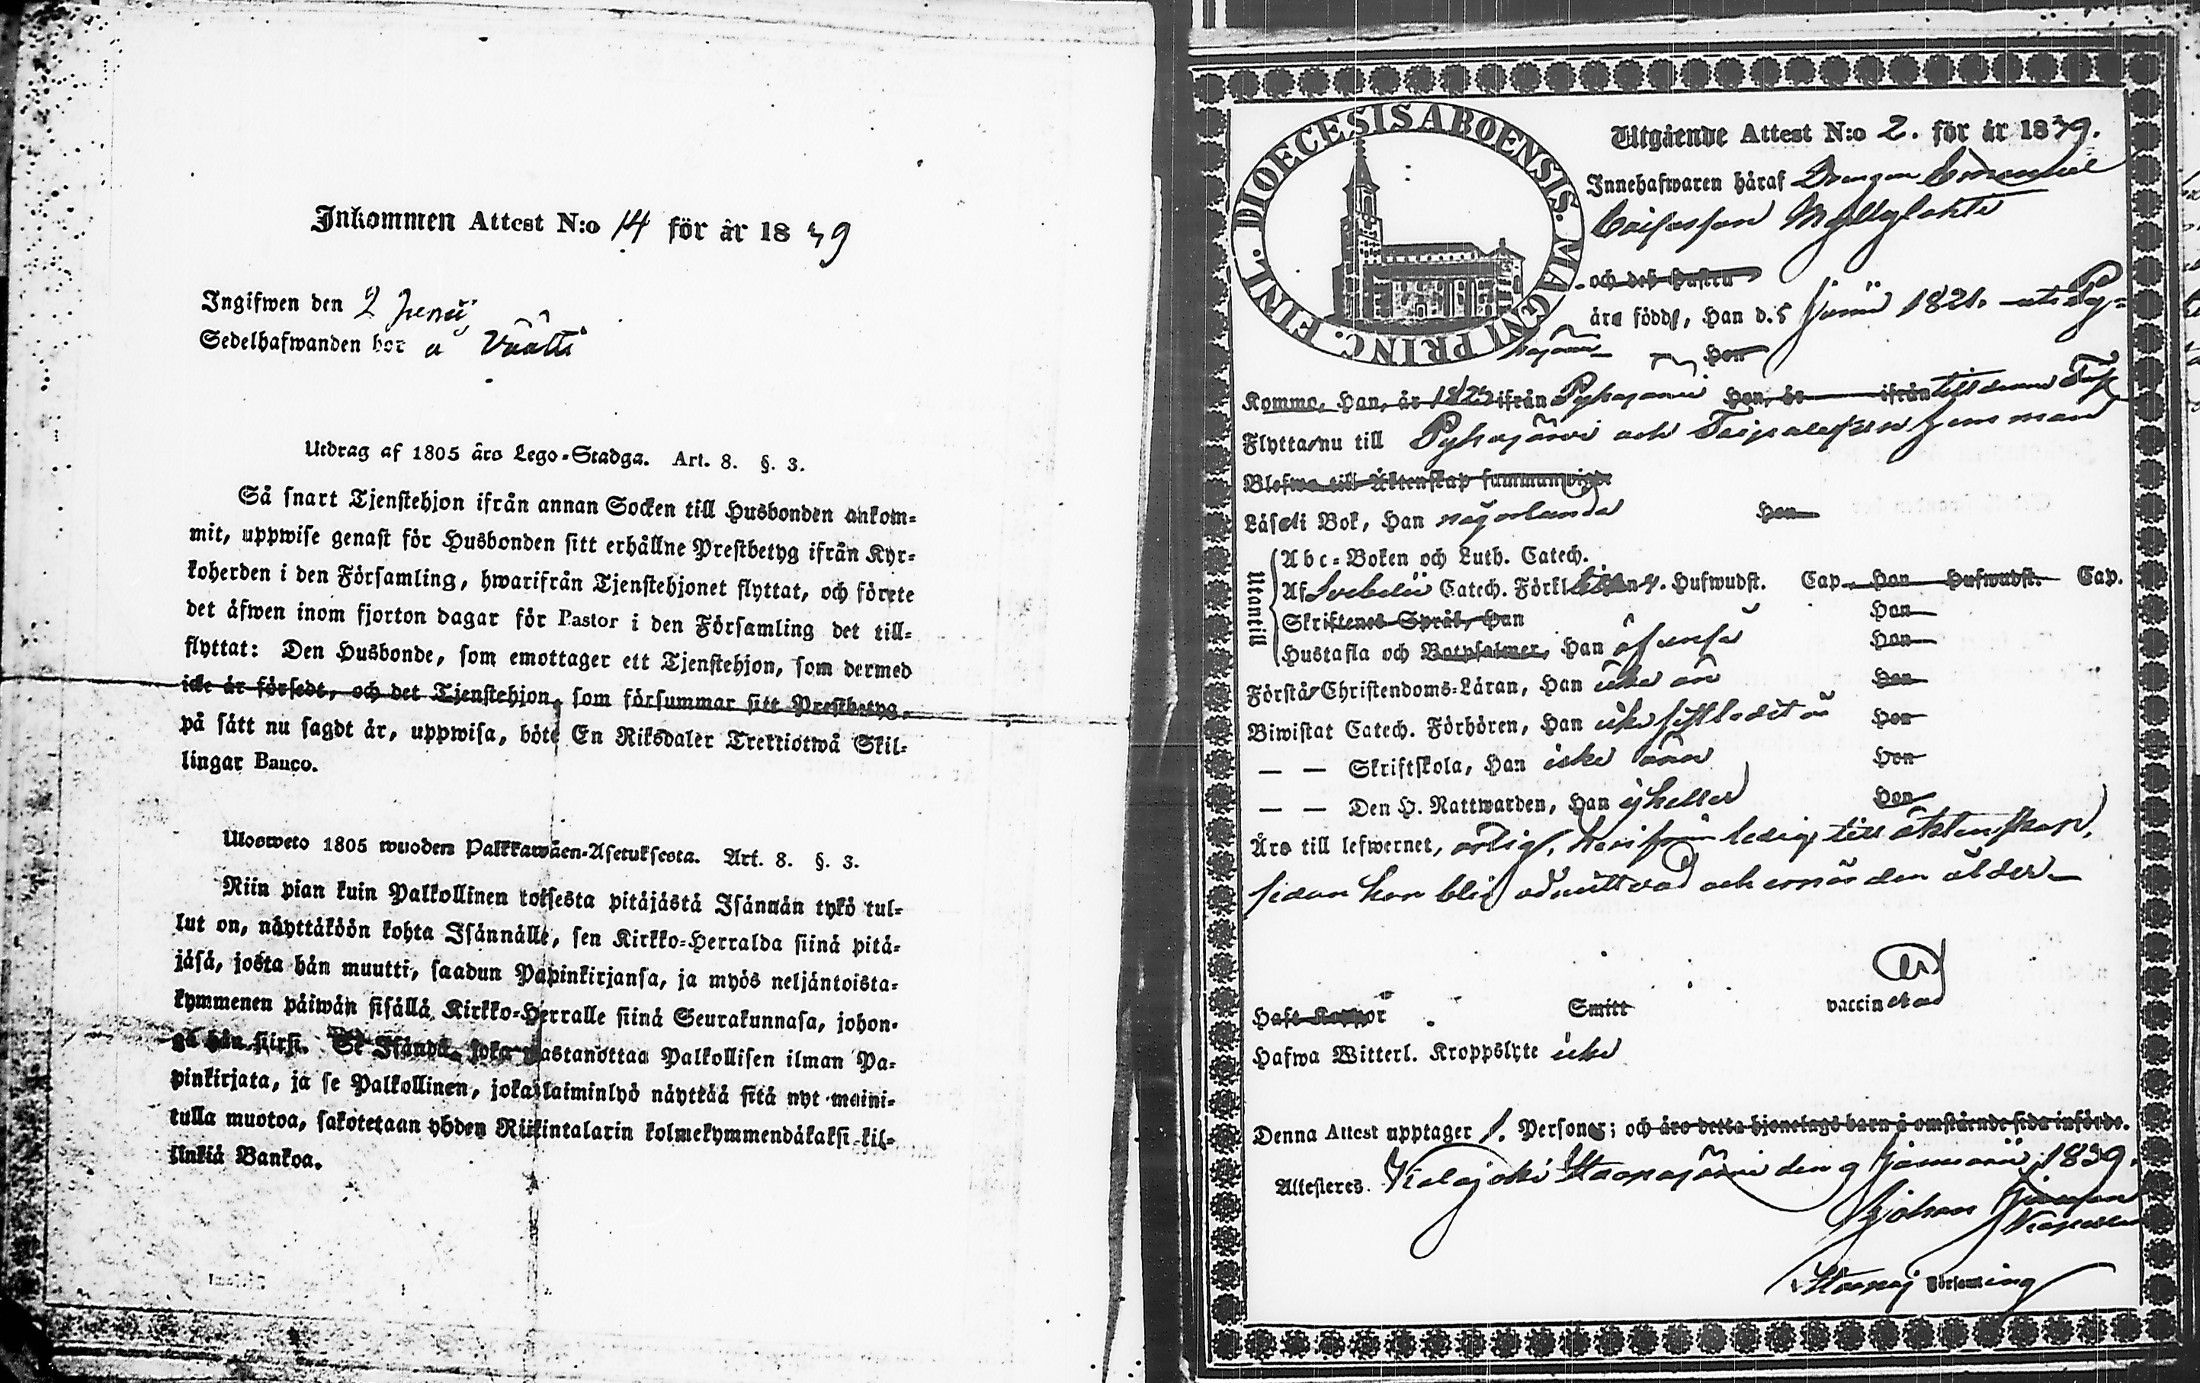 Inkommen Attest N:o 14 för år 1839
Ingifwen den 2 Junii
Sedelhafwanden bor å Väätti
Utdrag af 1805 års Lego-Stadga. Art. 8. §. 3.
Så snart Tjenstehjon ifrån annan Socken till Husbonden ankom-
mit, uppwise genast för Husbonden sitt erhållne Prestbetyg ifrån Kyr-
koherden i den Församling, hwarifrån Tjenstehjonet flyttat, och förete
det äfwen inom fjorton dagar för Pastor i den Församling det till-
flyttat: Den Husbonde, som emottager ett Tjenstehjon, som dermed
icke är försedt, och det Tjenstehjon, som försummar sitt Prestbetyg,
på sätt nu sagdt är, uppwisa, böte En Riksdaler Trettiotwå Skil-
lingar Banco.
Ulosweto 1805 wuoden Palkkawäen-Asetuksesta. Art. 8. §. 3.
Niin pian kuin Palkollinen toisesta pitäjästä Isännän tykö tul-
lut on, näyttäköön kohta Isännälle, sen Kirkko-Herralda siinä pitä-
jäsä, josta hän muutti, saadun Papinkirjansa, ja myös neljäntoista-
kymmenen päiwän sisällä Kirkko-Herralle siinä Seurakunnasa, johon-
ga hän siirsi. Se Isändä, joka wastanottaa Palkollisen ilman Pa-
pinkirjata, ja se Palkollinen, joka laiminlyö näyttää sitä nyt maini-
tulla muotoa, sakotetaan yhden Riikintalarin kolmekymmendäkaksi kil-
linkiä Bankoa.
DIOECESIS ABOENSIS. MAGNI PRINC. FINL.
Utgående Attest N:o 2. för år 1839.
Innehafwaren häraf Drengen Emanuel
Esaiasson Myllylahti
och des hustru
äro födde, Han d. 5 Junii 1821. uti Py-
hajärvi Hon
Kommo, Han, år 182 ifrån Pyhajärvi Hon, år ifrån till denna
Flytta nu till Pyhajärvi och
Blefwo till Äktenskap sammanwigde
Läsa i Bok, Han någorlunda Hon
Utantill
Abc-Boken och Luth. Catech.
Af Svebelii Catech. Förkl. 4. Hufwudst. Cap. Hon Hufwudst. Cap.
Skriftenes Språk, Han Hon
Hustafla och Botpsalmer, Han Hon
Förstå Christendoms-Läran, Han icke än Hon
Biwistat Catech. Förhören, Han icke Hon
— — Skriftskola, Han icke än Hon
— — Den H. Nattwarden, Han ej heller Hon
Äro till lefwernet, ärlig, härifrån ledig till äktenskap,
sedan han blir admitterad och ernår den ålder
Haft Koppor Smitt vaccinerad
Hafwa Witterl. Kroppslyte icke
Denna Attest upptager 1. Personer; och äro detta hjonelags barn å omstående sida införde.
Attesteras. Kalajoki Haapajärvi den 9 Januarii 1839.
Johan
Kapellan
i Haapaj Församling